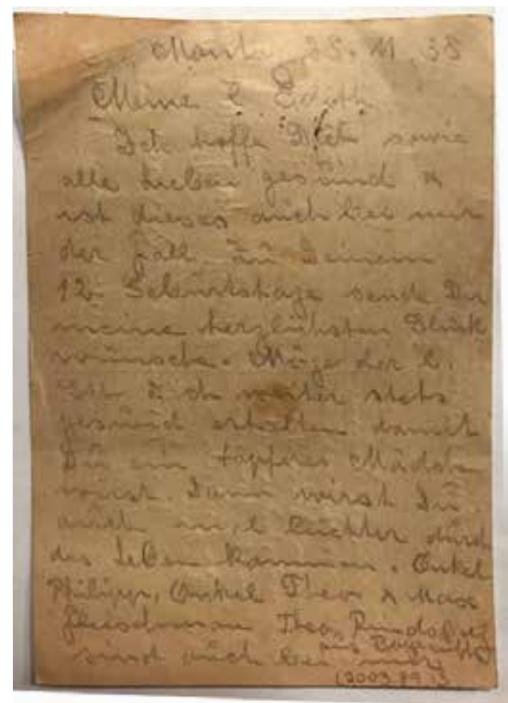 28. 11. 38
Meine l. Edith
Ich hoffe Dich sowie
alle Lieben gesund &
ist dieses auch bei mir
der Fall. Zu Deinem
12. Geburtstage sende Dir
meine herzlichsten Glück
wünsche. Möge der l.
Gtt Dich weiter stets
gesund erhalten damit
Du ein tapferes Mädch
wirst. Dann wirst Du
auch leichter durch
das Leben kommen. Onkel
Philipp, Onkel Theo & Max
Fleischmann Theo
aus
sind auch bei mir
(2003.89.